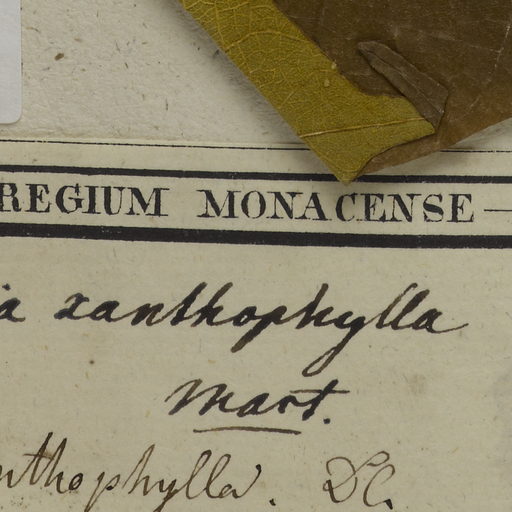 REGIUM MONACENSE
ia xanthophylla
Mart.
nthophylla. DC.